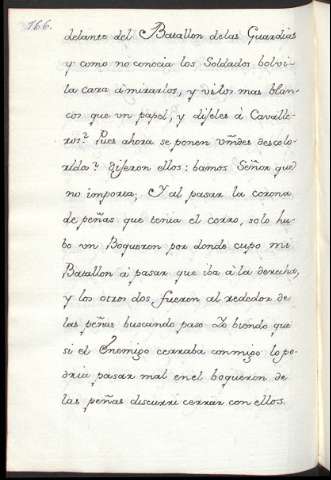 166.
delante del Batallon delas Guardias
y como no conocia los Soldados bolvi
la cara á mirarlos, y vilos mas blan-
cos que un papel, y diseles á Cavalle-
ros? Pues ahora se ponen Vmdes descolo-
ridos? Diseron ellos: bamos Señor que
no importa; Y al pasar la corona
de peñas que tenia el cerro, solo hu-
bo un Boqueron por donde cupo mi
Batallon á pasar que iba á la derecha,
y los otros dos fueron al rededor de
las peñas buscando paso. Yo biendo que
si el Enemigo cerraba conmigo lo po-
dria pasar mal en el boqueron de
las peñas discurri cerrar con ellos.